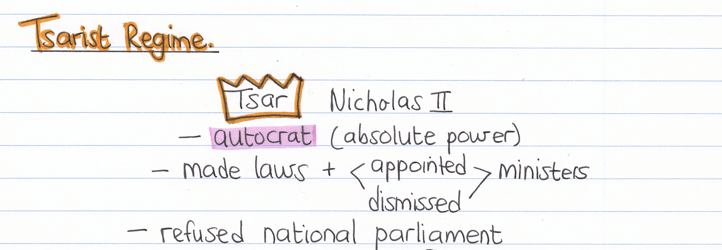 Tsarist Regime.
Tsar Nicholas II
- autocrat (absolute power)
- made laws + < appointed > ministers
dismissed
- refused national parliament